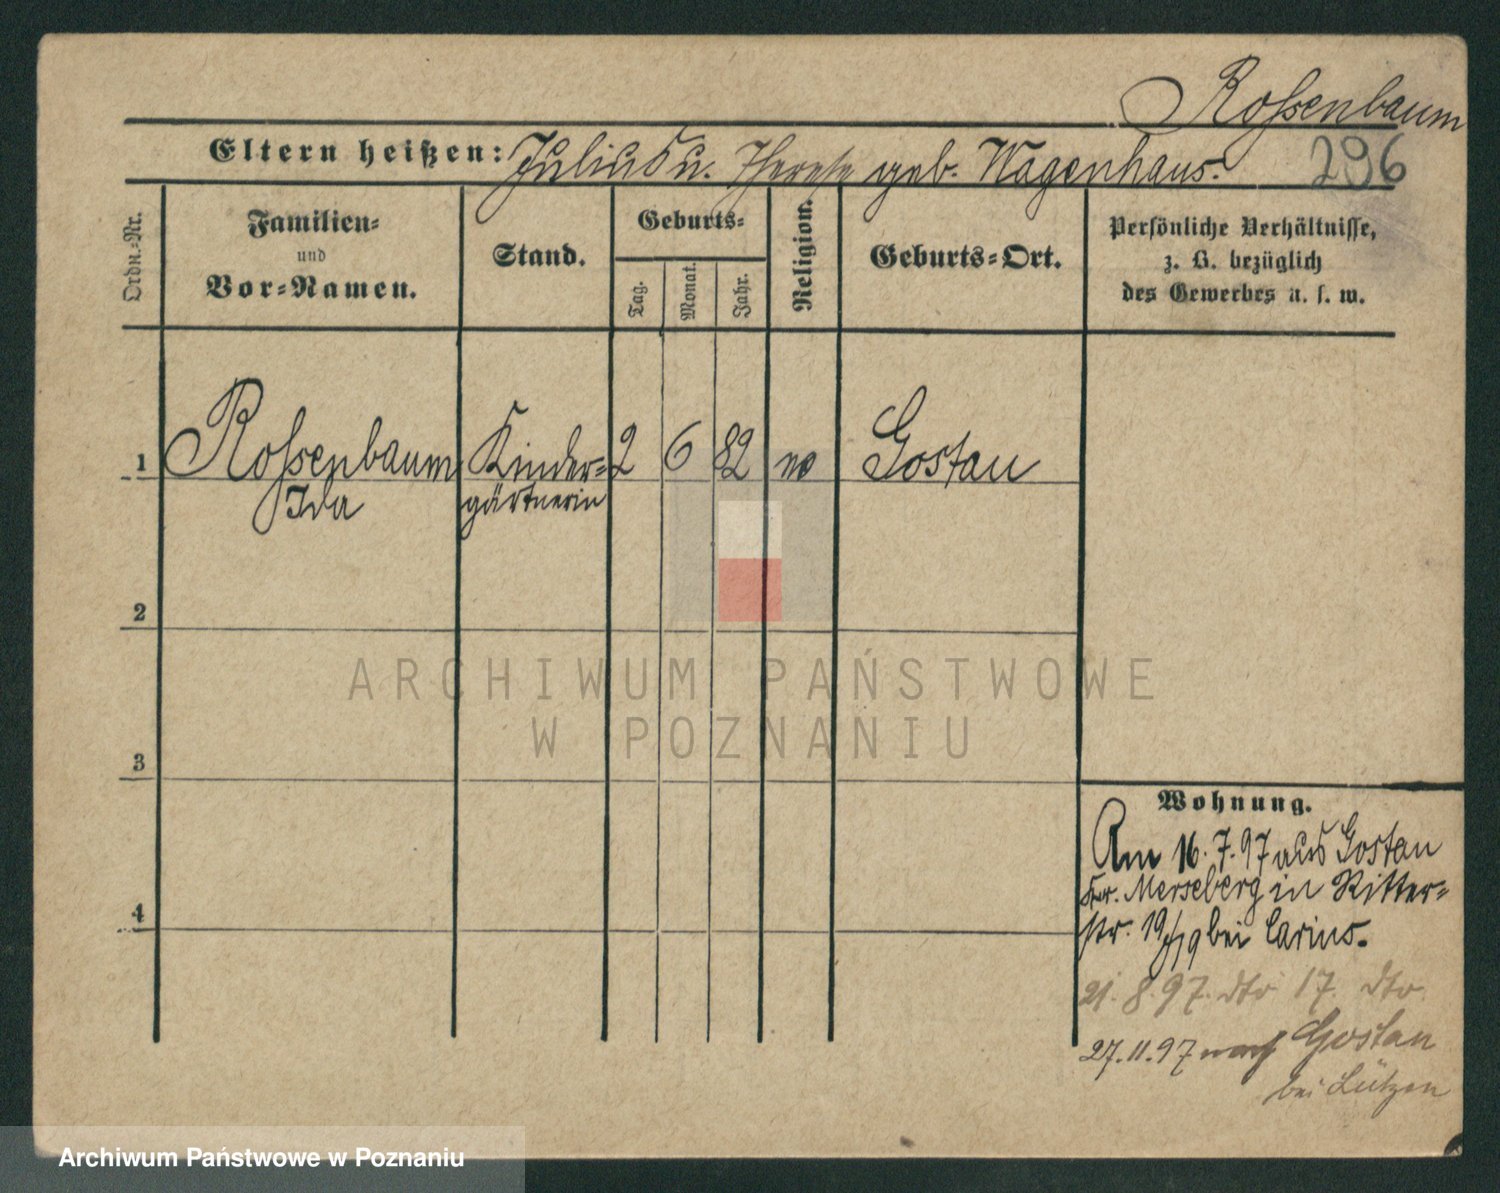 Rossenbaum
Eltern heißen: Julius u. Therese geb. Wagenhaus.
296
Ordn.-Nr.
Familien-
und
Vor-Namen.
Stand.
Geburts-
Tag.
Monat.
Jahr.
Religion.
Geburts-Ort.
Persönliche Verhältnisse,
z. B. bezüglich
des Gewerbes u. s. w.
1 Rossenbaum Kinder- 2 6 82 Gostau
Ida gärtnerin
2
3
4
Wohnung.
Am 16.7.97 aus Gostau
Kr. Merseberg in Ritter-
str. 19/19 bei Carius.
21.8.97. dto 17. dto.
27.11.97 nach Gostau
bei Lützen
ARCHIWUM PAŃSTWOWE
W POZNANIU
Archiwum Państwowe w Poznaniu